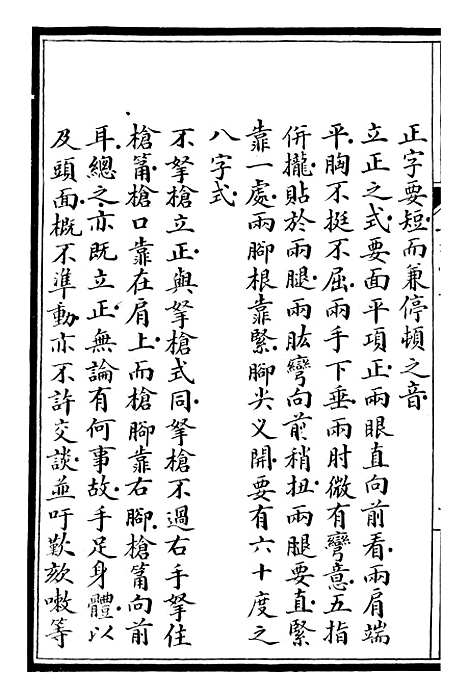 正字要短而兼停頓之音
立正之式要面平項正兩眼直向前看兩肩端
平胸不挺不屈兩手下垂兩肘微有彎意五指
併攏貼於兩腿兩肱彎向前稍扭兩腿要直緊
靠一處兩腳根靠緊腳尖义開要有六十度之
八字式
不拏槍立正與拏槍式同拏槍不過右手拏住
槍筩槍口靠在肩上而槍腳靠右腳槍筩向前
耳總之亦既立正無論有何事故手足身體以
及頭面概不準動亦不許交談並吁歎欬嗽等